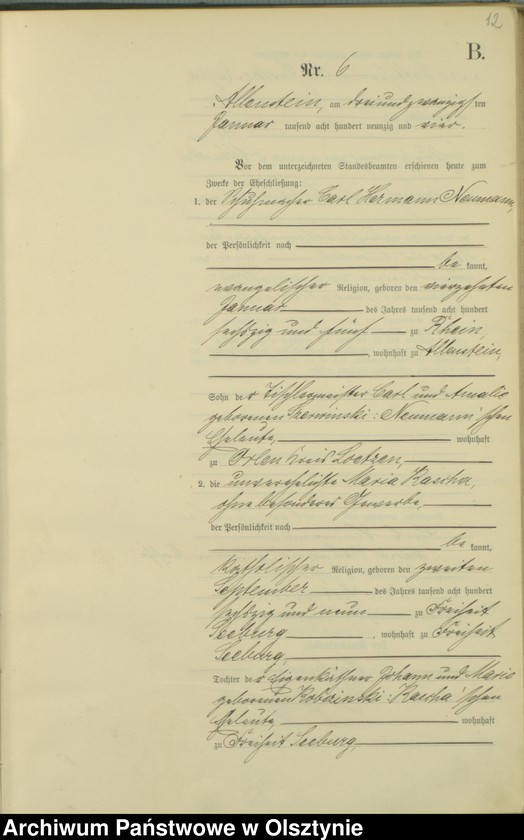 12
B.
Nr. 6
Allenstein, am dreiundzwanzigsten
Januar tausend acht hundert neunzig und vier.
Vor dem unterzeichneten Standesbeamten erschienen heute zum
Zwecke der Eheschließung:
1. der Schuhmacher Carl Hermann Neumann,
der Persönlichkeit nach
be kannt,
evangelischer Religion, geboren den vierzehnten
Januar des Jahres tausend acht hundert
sechszig und fünf zu Rhein,
, wohnhaft zu Allenstein,
Sohn der Tischlermeister Carl und Amalie
geborenen Neumann'schen
Eheleute, wohnhaft
zu Orlen Kreis Loetzen,
2. die unverehelichte Maria Kascha,
ohne besonderes Gewerbe,
der Persönlichkeit nach
be kannt,
katholischer Religion, geboren den zweiten
September des Jahres tausend acht hundert
sechszig und neun zu Freiheit
Seeburg, wohnhaft zu Freiheit
Seeburg,
Tochter der Eigenkäthner Johann und Marie
geborenen Kascha'schen
Eheleute, wohnhaft
zu Freiheit Seeburg,
Archiwum Państwowe w Olsztynie